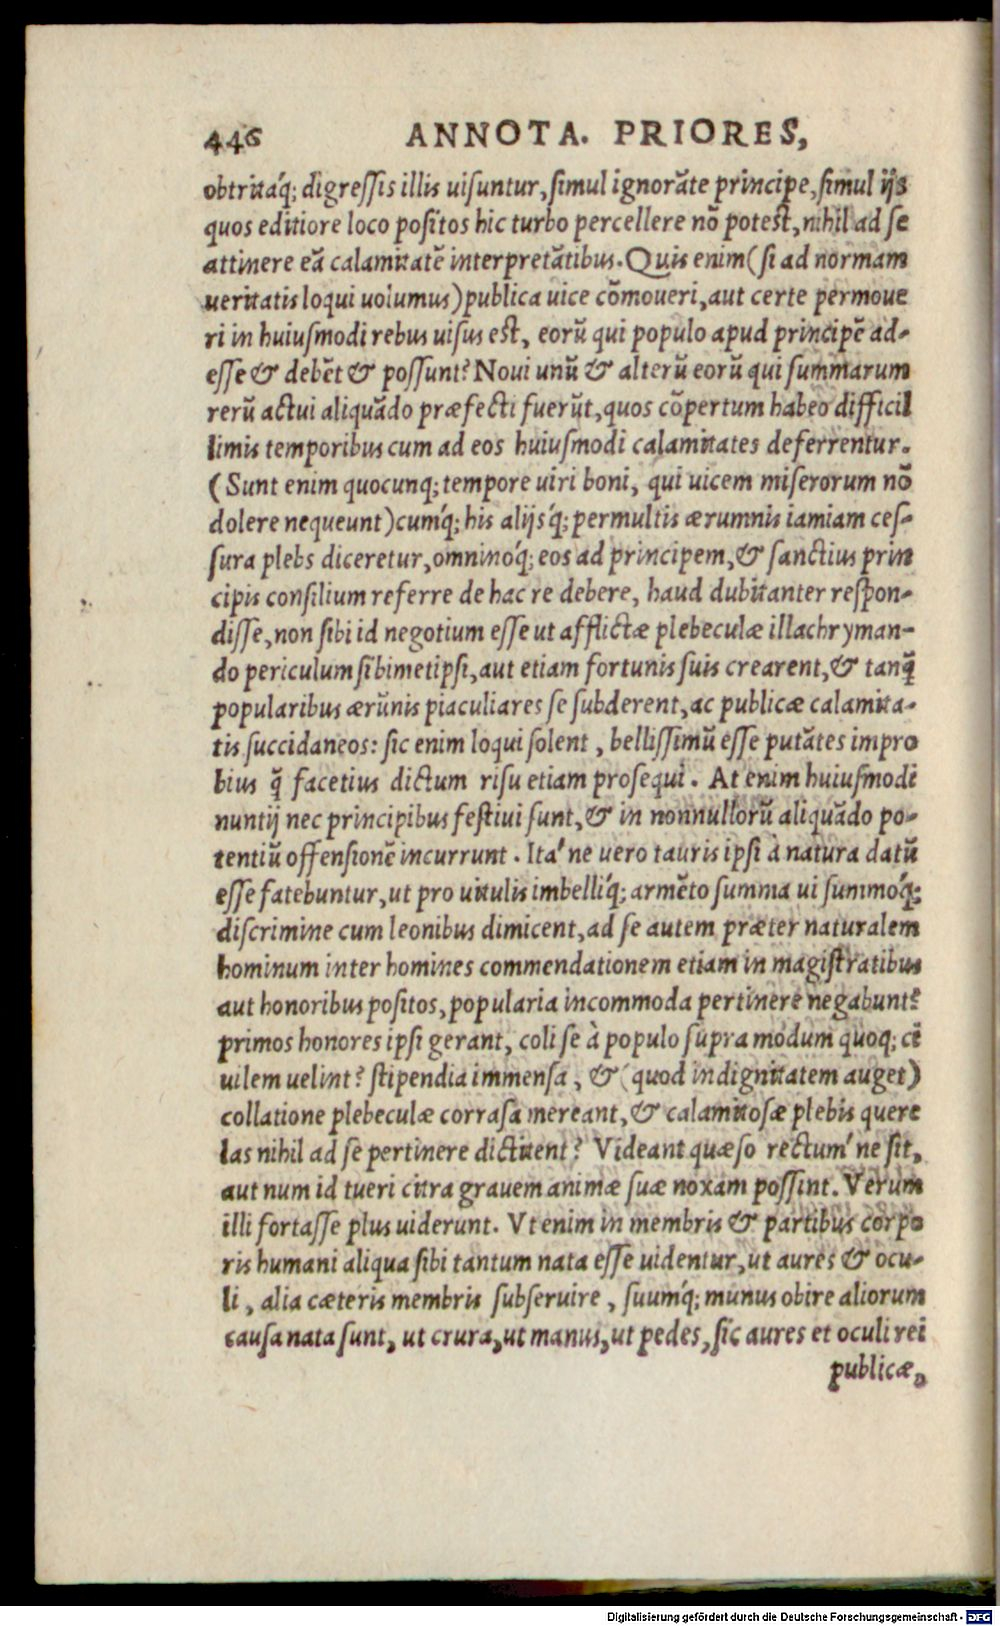 446 ANNOTA. PRIORES,
obtritáq; digressis illis uisuntur, simul ignorāte principe, simul ijs
quos editiore loco positos hic turbo percellere nō potest, nihil ad se
attinere eā calamitatē interpretātibus. Quis enim (si ad normam
ueritatis loqui uolumus) publica uice cōmoueri, aut certe permoue
ri in huiusmodi rebus uisus est, eorū qui populo apud principē ad-
esse & debēt & possunt? Noui unū & alterū eorū qui summarum
rerū actui aliquādo præfecti fuerūt, quos cōpertum habeo difficil
limis temporibus cum ad eos huiusmodi calamitates deferrentur.
(Sunt enim quocunq; tempore uiri boni, qui uicem miserorum nō
dolere nequeunt) cumq́; his alijsq́; permultis ærumnis iamiam ces-
sura plebs diceretur, omninoq́; eos ad principem, & sanctius prin
cipis consilium referre de hac re debere, haud dubitanter respon-
disse, non sibi id negotium esse ut afflictæ plebeculæ illachryman-
do periculum sibimetipsi, aut etiam fortunis suis crearent, & tanq̄
popularibus ærūnis piaculiares se subderent, ac publicæ calamita-
tis succidaneos: sic enim loqui solent, bellissimū esse putātes impro
bius q̄ facetius dictum risu etiam prosequi. At enim huiusmodi
nuntij nec principibus festiui sunt, & in nonnullorū aliquādo po-
tentiū offensionē incurrunt. Ita' ne uero tauris ipsi à natura datū
esse fatebuntur, ut pro uitulis imbelliq́; armēto summa ui summoq́;
discrimine cum leonibus dimicent, ad se autem præter naturalem
hominum inter homines commendationem etiam in magistratibus
aut honoribus positos, popularia incommoda pertinere negabunt?
primos honores ipsi gerant, coli se à populo supra modum quoq; ci
uilem uelint? stipendia immensa, & (quod indignitatem auget)
collatione plebeculæ corrasa mereant, & calamitosæ plebis quere
las nihil ad se pertinere dictitent? Videant quæso rectum' ne sit,
aut num id tueri citra grauem animæ suæ noxam possint. Verum
illi fortasse plus uiderunt. Vt enim in membris & partibus corpo
ris humani aliqua sibi tantum nata esse uidentur, ut aures & ocu-
li, alia cæteris membris subseruire, suumq́; munus obire aliorum
causa nata sunt, ut crura, ut manus, ut pedes, sic aures et oculi rei
publicæ,
Digitalisierung gefördert durch die Deutsche Forschungsgemeinschaft - DFG